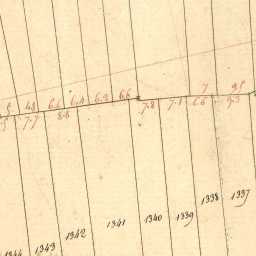 4.8 6.6 6.4 6.2 6.6 7 9.5
7.7 8.6 7.8 7.1 6.6 9.3
1344 1343 1342 1341 1340 1339 1338 1337